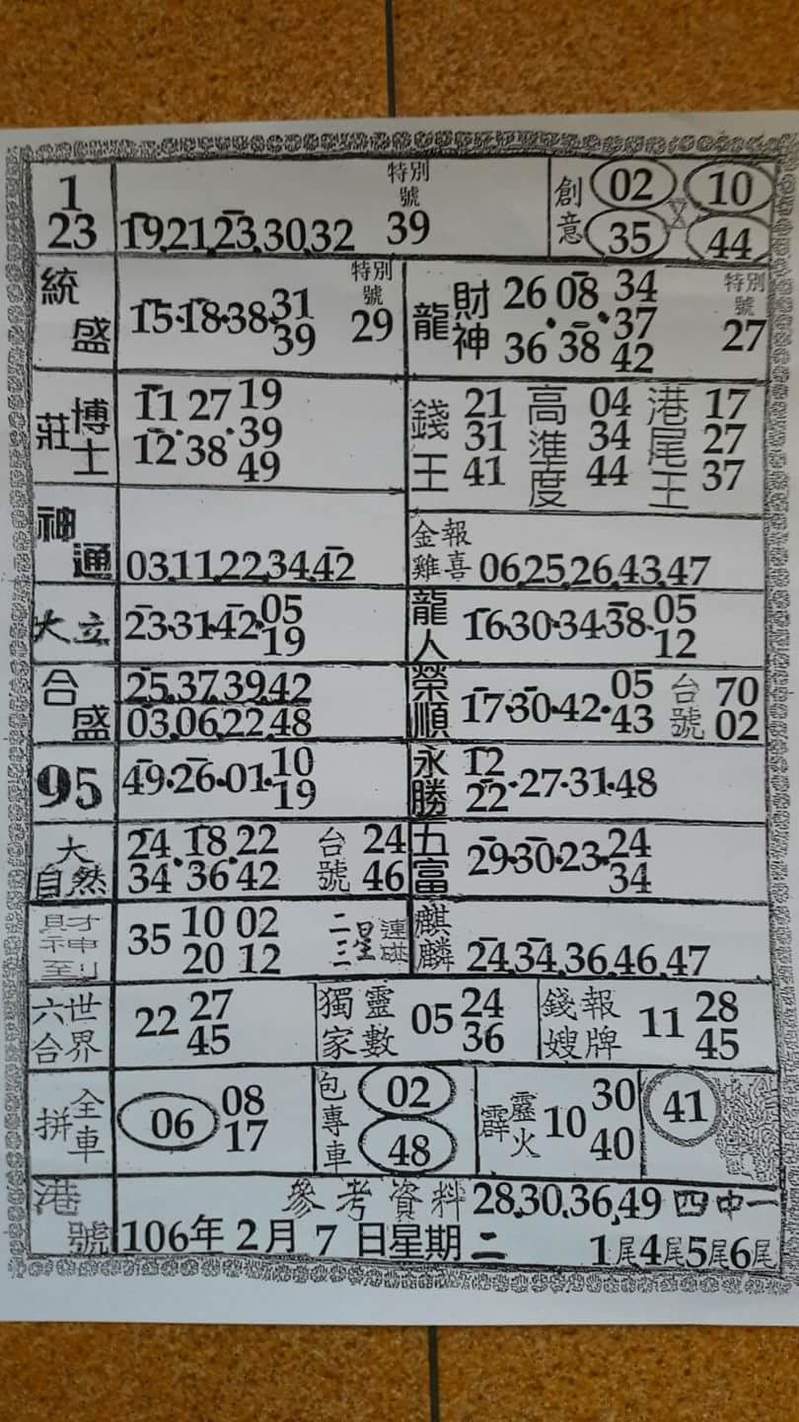 1
23
19.21.23.30.32
特別號
39
創意
02 10
35 44
統盛
15·18·38·31
39
特別號
29
龍財神
26 08 34
37
36 38 42
特別號
27
莊博士
11 27 19
39
12 38 49
錢王
21
31
41
高準度
04
34
44
港尾王
17
27
37
神通
03.11.22.34.42
金雞報喜
06.25.26.43.47
大立
23·31·42·05
19
龍人
16·30·34·38·05
12
合盛
25.37.39.42
03.06.22.48
榮順
17·30·42·05
43
台號
70
02
95
49·26·01·10
19
永勝
12
22·27·31·48
大自然
24 18 22
34 36 42
台號
24
46
五富
29·30·23·24
34
財神到
35 10 02
20 12
二三星連碰
麒麟
24.34.36.46.47
六合世界
22 27
45
獨家靈數
05 24
36
錢嫂報牌
11 28
45
拼全車
06 08
17
包專車
02
48
霹靂火
10 30
40
41
港號
參考資料 28.30.36.49 四中一
106年 2月 7 日星期 二 1尾4尾5尾6尾